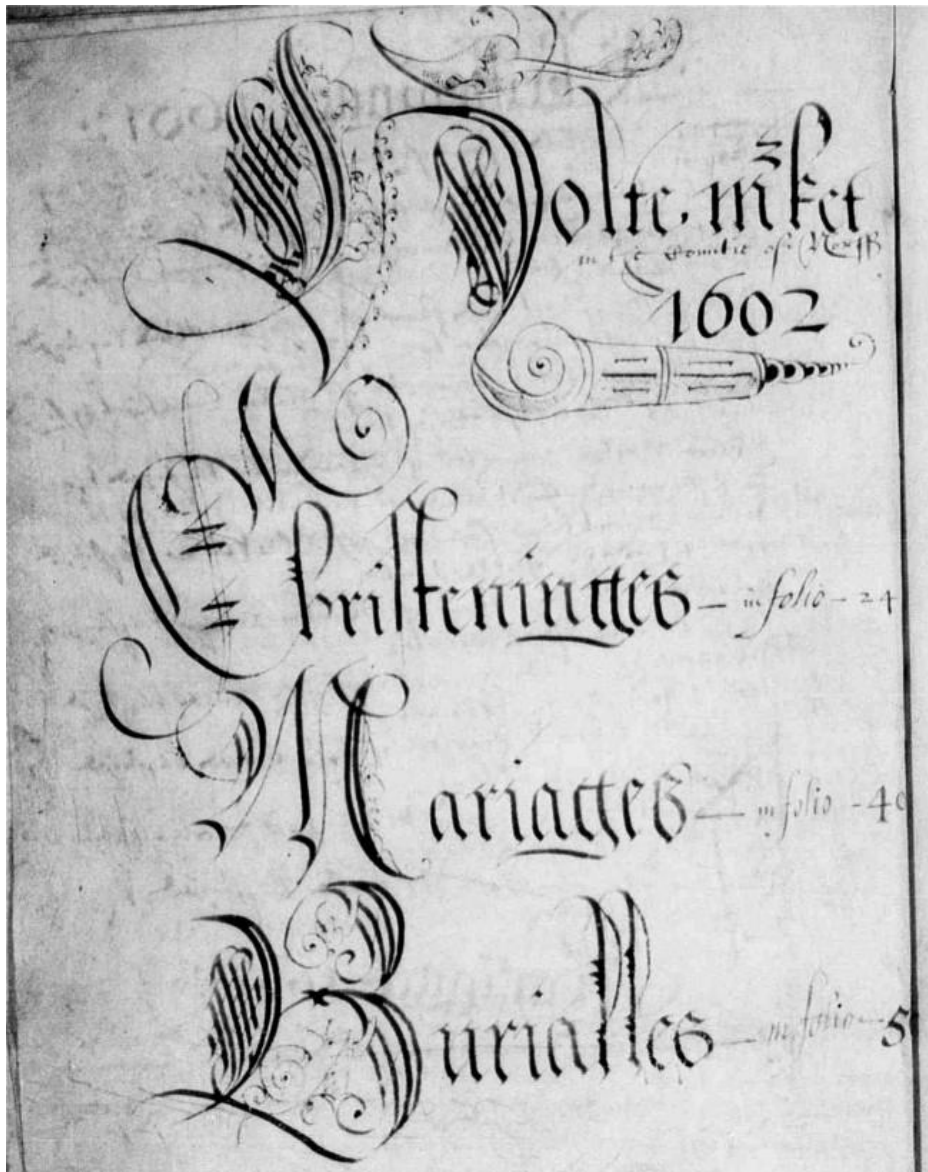 Holte m̃ket
in the Countie of Norff
1602
Christeninges - in folio - 24
Mariages - in folio - 40
Burialles - in folio - 5